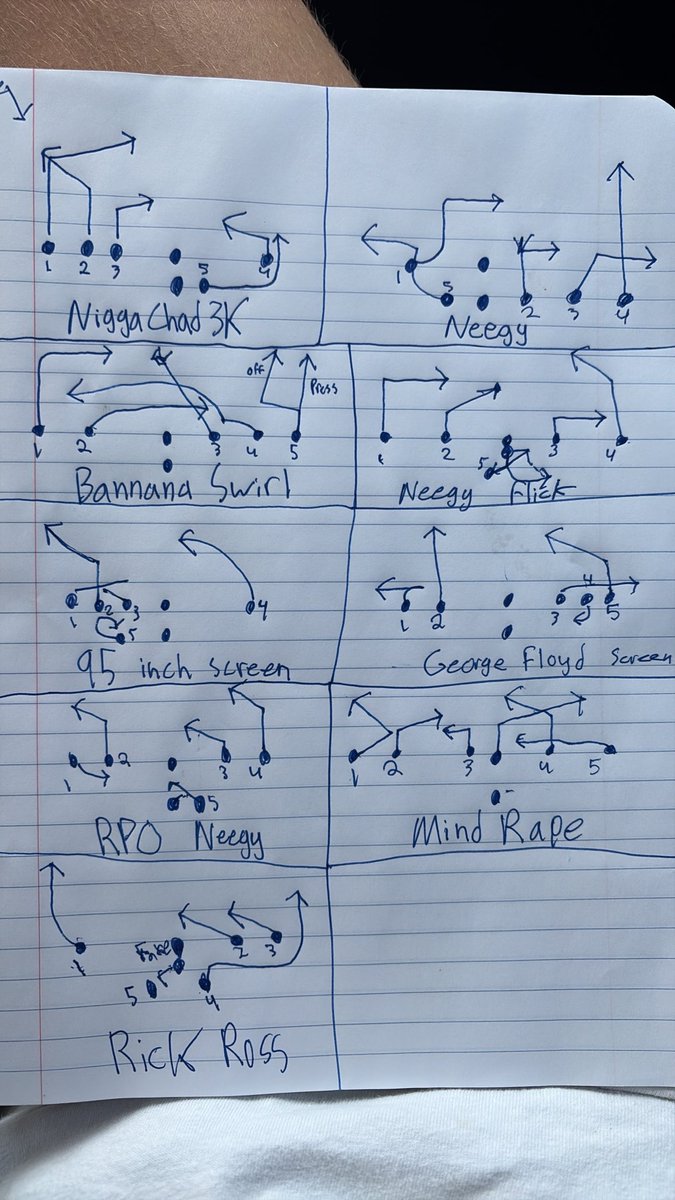 1 2 3 5 4
Nigga Chad 3K
1 5 2 3 4
Neegy
off Press
1 2 3 4 5
Bannana Swirl
1 2 5 3 4
Neegy Flick
1 2 3 4
5
95 inch screen
4
1 2 3 5
George Floyd Screen
1 2 3 4
5
RPO Neegy
1 2 3 4 5
Mind Rape
1 2 3
5 4
Rick Ross